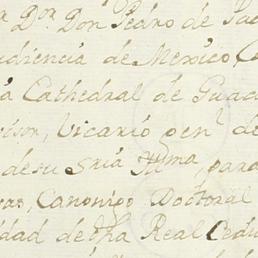 Dor. Don Pedro de
udiencia de Mexico
a Cathedral de Guad
visor, Vicario genl. de
desu Sria. Illma, para
Canonigo Doctoral
dad de dha Real Cedu